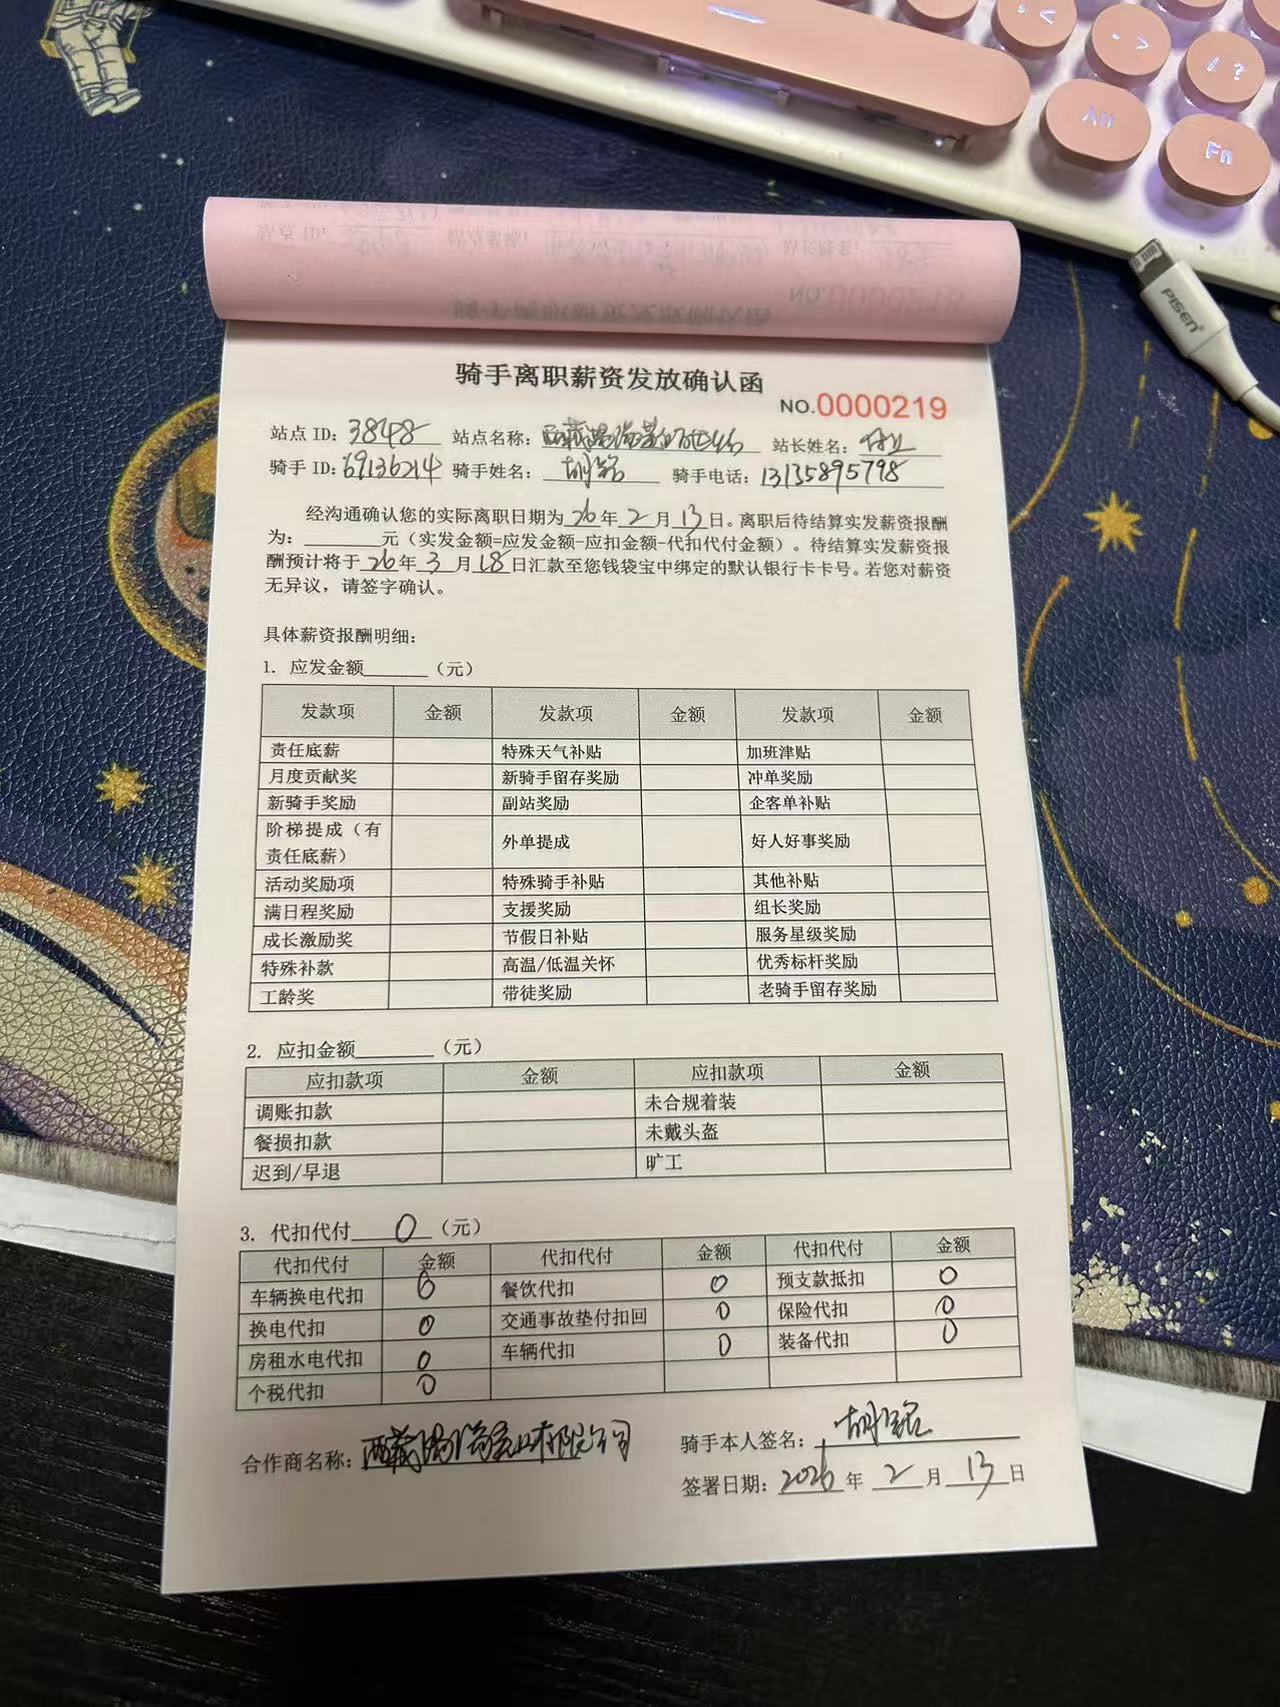 Alt
Fn
/ ?
PISEN
骑手离职薪资发放确认函
NO.0000219
站点 ID: 3848 站点名称: 西藏 站长姓名:
骑手 ID: 69136214 骑手姓名: 胡铭 骑手电话: 13135895798
经沟通确认您的实际离职日期为 26 年 2 月 13 日。离职后待结算实发薪资报酬
为:______元（实发金额=应发金额-应扣金额-代扣代付金额）。待结算实发薪资报
酬预计将于 26 年 3 月 18 日汇款至您钱袋宝中绑定的默认银行卡卡号。若您对薪资
无异议，请签字确认。
具体薪资报酬明细:
1. 应发金额______（元）
发款项 金额 发款项 金额 发款项 金额
责任底薪 特殊天气补贴 加班津贴
月度贡献奖 新骑手留存奖励 冲单奖励
新骑手奖励 副站奖励 企客单补贴
阶梯提成（有责任底薪） 外单提成 好人好事奖励
活动奖励项 特殊骑手补贴 其他补贴
满日程奖励 支援奖励 组长奖励
成长激励奖 节假日补贴 服务星级奖励
特殊补款 高温/低温关怀 优秀标杆奖励
工龄奖 带徒奖励 老骑手留存奖励
2. 应扣金额______（元）
应扣款项 金额 应扣款项 金额
调账扣款 未合规着装
餐损扣款 未戴头盔
迟到/早退 旷工
3. 代扣代付 0 （元）
代扣代付 金额 代扣代付 金额 代扣代付 金额
车辆换电代扣 0 餐饮代扣 0 预支款抵扣 0
换电代扣 0 交通事故垫付扣回 0 保险代扣 0
房租水电代扣 0 车辆代扣 0 装备代扣 0
个税代扣 0
合作商名称: 西藏 有限公司 骑手本人签名: 胡铭
签署日期: 2026 年 2 月 13 日